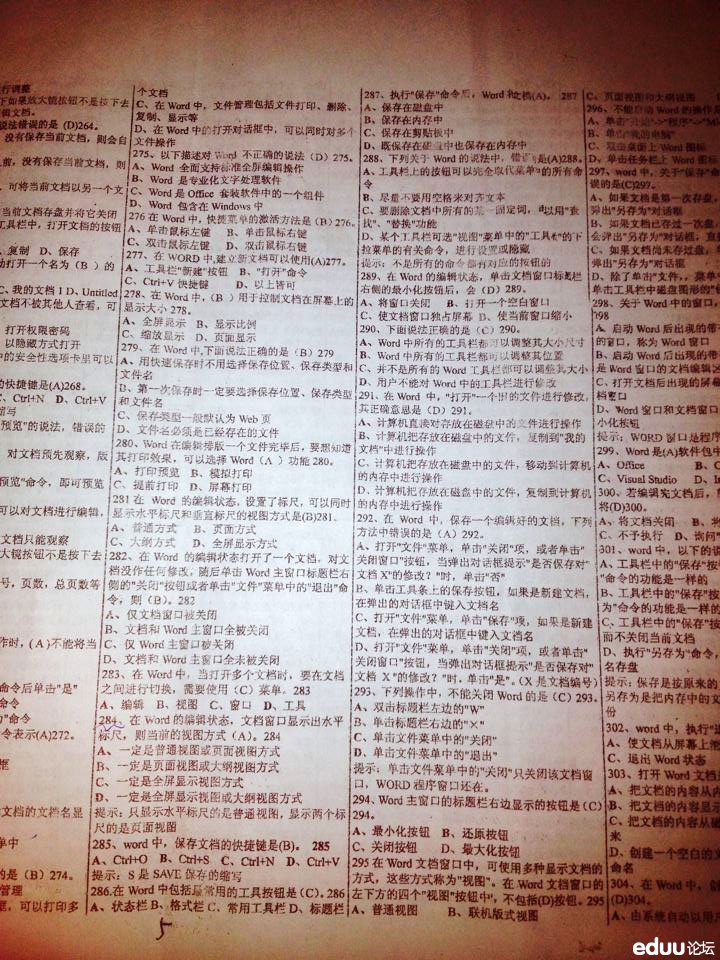 行调整
下如果放大镜按钮不是按下去
辑文档。
说法错误的是 (D)264。
没有保存当前文档，则会自
前，没有保存当前文档，则
可将当前文档以另一个文
当前文档存盘并将它关闭
工具栏中，打开文档的按钮
复制 D、保存
动打开一个名为（B ）的
C、我的文档 1 D、Untitled
文档不被其他人查看，可
打开权限密码
以隐藏方式打开
中的安全性选项卡里可以
的快捷键是(A)268。
C、Ctrl+N D、Ctrl+V
缩写
预览"的说法，错误的
对文档预先观察，版
预览"命令，即可预览
可以对文档进行编辑，
文档只能观察
大镜按钮不是按下去
号，页数，总页数等
作时，( A )不能将当
命令后单击"是"
命令
"命令
令表示(A)272。
框
文档的文档名显
单中
的是（B）274。
管理
框，可以打印多
个文档
C、在 Word 中，文件管理包括文件打印、删除、
复制、显示等
D、在 Word 中的打开对话框中，可以同时对多个
文件操作
275、以下描述对 Word 不正确的说法（D）275。
A、Word 全面支持标准全屏编辑操作
B、Word 是专业化文字处理软件
C、Word 是 Office 套装软件中的一个组件
D、Word 包含在 Windows 中
276 在 Word 中，快捷菜单的激活方法是（B）276。
A、单击鼠标左键 B、单击鼠标右键
C、双击鼠标左键 D、双击鼠标右键
277、在 WORD 中,建立新文档可以使用(A)277。
A、工具栏"新建"按钮 B、"打开"命令
C、Ctrl+V 快捷键 D、以上皆可
278、在 Word 中,（B ）用于控制文档在屏幕上的
显示大小 278。
A、全屏显示 B、显示比例
C、缩放显示 D、页面显示
279、在 Word 中,下面说法正确的是（B）279
A、用快速保存时不用选择保存位置、保存类型和
文件名
B、第一次保存时一定要选择保存位置、保存类型
和文件名
C、保存类型一般默认为 Web 页
D、文件名必须是已经存在的文件
280、Word 在编辑排版一个文件完毕后，要想知道
其打印效果，可以选择 Word（A ）功能 280。
A、打印预览 B、模拟打印
C、提前打印 D、屏幕打印
281 在 Word 的编辑状态，设置了标尺，可以同时
显示水平标尺和垂直标尺的视图方式是(B)281。
A、普通方式 B、页面方式
C、大纲方式 D、全屏显示方式
282、在 Word 的编辑状态打开了一个文档，对文
档没作任何修改，随后单击 Word 主窗口标题栏右
侧的"关闭"按钮或者单击"文件"菜单中的"退出"命
令，则（B）。282
A、仅文档窗口被关闭
B、文档和 Word 主窗口全被关闭
C、仅 Word 主窗口被关闭
D、文档和 Word 主窗口全未被关闭
283、在 Word 中，当打开多个文档时，要在文档
之间进行切换，需要使用（C）菜单。283
A、编辑 B、视图 C、窗口 D、工具
284、在 Word 的编辑状态，文档窗口显示出水平
标尺，则当前的视图方式（A）。284
A、一定是普通视图或页面视图方式
B、一定是页面视图或大纲视图方式
C、一定是全屏显示视图方式
D、一定是全屏显示视图或大纲视图方式
提示：只显示水平标尺的是普通视图，显示两个标
尺的是页面视图
285、word 中，保存文档的快捷键是(B)。 285
A、Ctrl+O B、Ctrl+S C、Ctrl+N D、Ctrl+V
提示：S 是 SAVE 保存的缩写
286.在 Word 中包括最常用的工具按钮是（C）。286
A、状态栏 B、格式栏 C、常用工具栏 D、标题栏
5
287、执行"保存"命令后，Word 和文档(A)。287
A、保存在磁盘中
B、保存在内存中
C、保存在剪贴板中
D、既保存在磁盘中也保存在内存中
288、下列关于 Word 的说法中，错误的是(A)288。
A、工具栏上的按钮可以完全取代菜单"的所有命
令
B、尽量不要用空格米对齐文本
C、要删除文档中所有的某一固定词，可以用"查
找"、"替换"功能
D、某个工具栏可选"视图"菜单中的"工具栏"的下
拉菜单的有关命令，进行设置或隐藏
提示：不是所有的命令都有对应的按钮的
289、在 Word 的编辑状态，单击文档窗口标题栏
右侧的最小化按钮后，会（D）289。
A、将窗口关闭 B、打开一个空白窗口
C、使文档窗口独占屏幕 D、使当前窗口缩小
290、下面说法正确的是（C ）290。
A、Word 中所有的工具栏都可以调整其大小尺寸
B、Word 中所有的工具栏都可以调整其位置
C、并不是所有的 Word 工具栏都可以调整其大小
D、用户不能对 Word 中的工具栏进行修改
291、在 Word 中，"打开"一个旧的文件进行修改，
其正确意思是（D）291。
A、计算机直接对存放在磁盘中的文件进行操作
B、计算机把存放在磁盘中的文件，复制到"我的
文档"中进行操作
C、计算机把存放在磁盘中的文件，移动到计算机
的内存中进行操作
D、计算机把存放在磁盘中的文件，复制到计算机
的内存中进行操作
292、在 Word 中，保存一个编辑好的文档，下列
方法中错误的是（A）292。
A、打开"文件"菜单，单击"关闭"项，或者单击"
关闭窗口"按钮，当弹出对话框提示"是否保存对"
文档 X"的修改？"时，单击"否"
B、单击工具条上的保存按钮，如果是新建文档，
在弹出的对话框中键入文档名
C、打开"文件"菜单，单击"保存"项，如果是新建
文档，在弹出的对话框中键入文档名
D、打开"文件"菜单，单击"关闭"项，或者单击"
关闭窗口"按钮，当弹出对话框提示"是否保存对"
文档 X"的修改?"时，单击"是"。(X 是文档编号)
293、下列操作中，不能关闭 Word 的是（C）293。
A、双击标题栏左边的"W"
B、单击标题栏右边的"×"
C、单击文件菜单中的"关闭"
D、单击文件菜单中的"退出"
提示：单击文件菜单中的"关闭"只关闭该文档窗
口，WORD 程序窗口还在。
294、Word 主窗口的标题栏右边显示的按钮是（C）
294。
A、最小化按钮 B、还原按钮
C、关闭按钮 D、最大化按钮
295 在 Word 文档窗口中，可使用多种显示文档的
方式，这些方式称为"视图"。在 Word 文档窗口的
左下方的四个"视图"按钮中"，不包括(D)按钮。295
A、普通视图 B、联机版式视图
C、页面视图和大纲视图
296、不能启动 Word 的操作是
A、单击"开始"->"程序"->"Mi
B、单击"我的电脑"
C、双击桌面上 Word 图标
D、单击任务栏上 Word 图标
297、word 中，关于"保存"命
误的是(C)297。
A、如果文档是第一次存盘，
弹出"另存为"对话框
B、如果文档已存过一次盘，
会弹出"另存为"对话框，直
C、如果文档尚未存过盘，
弹出"另存为"对话框
D、除了单击"文件,，菜单
单击工具栏中磁盘图形的"
298、关于 Word 中的窗口，
298
A、启动 Word 后出现的带
的窗口，称为 Word 窗口
B、启动 Word 后出现的带
是 Word 窗口的文档编辑区
C、打开文档后出现的屏幕
档窗口
D、Word 窗口和文档窗口
小化按钮
提示：WORD 窗口是程序
299、Word 是(A)软件包中
A、Office B、
C、Visual Studio D、In
300、若编辑完文档后，
将(D)300。
A、将文档关闭 B、将
C、不予执行 D、询问"
301、word 中，以下的说
A、工具栏中的"保存"按
"命令的功能是一样的
B、工具栏中的"保存"按
为"命令的功能是一样的
C、工具栏中的"保存"
而不关闭当前文档
D、执行"另存为"命令，
名存盘
提示：保存是按原来的
另存为是把内存中的文
份
302、word 中，执行"退
A、使文档从屏幕上消
C、退出 Word 状态
303、打开 Word 文档
A、把文档的内容从内
B、把文档的内容显示
C、把文档的内容从磁
来
D、创建一个空白的文
命名
304、在 Word 中，创
(D)304。
A、由系统自动以用户
eduu论坛